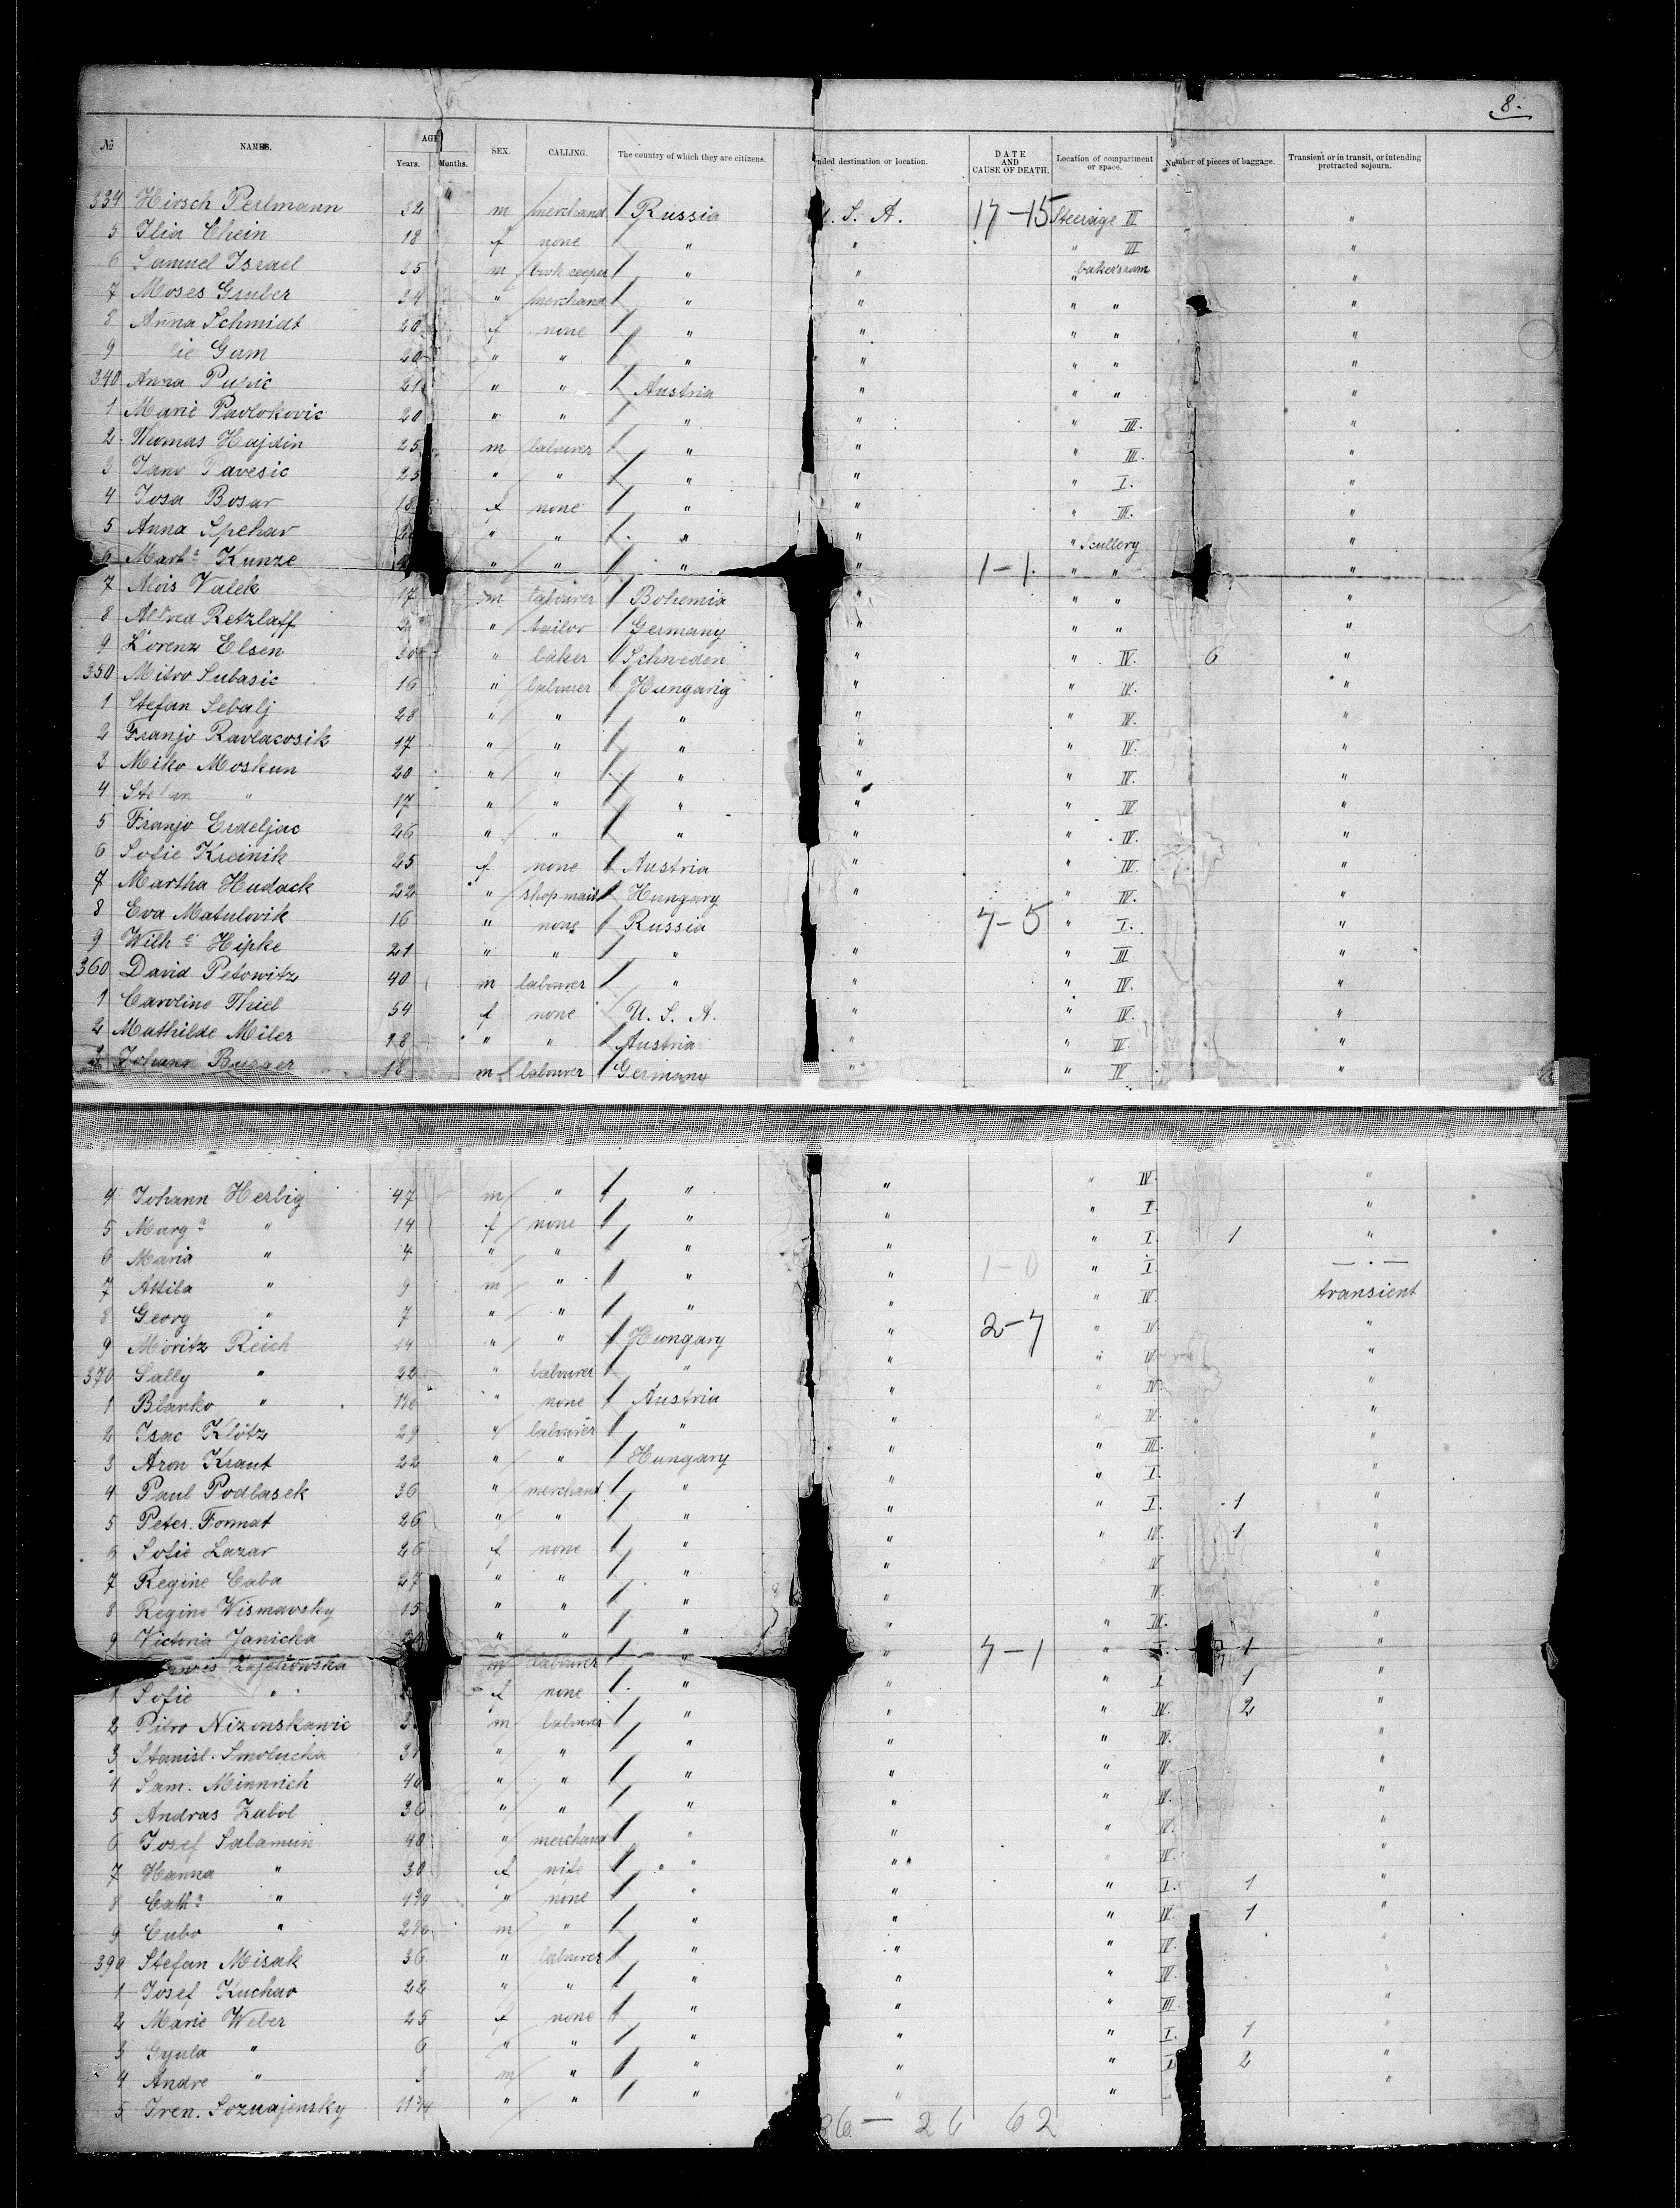 8.
№ NAMES. AGE Years. Months. SEX. CALLING. The country of which they are citizens. nded destination or location. DATE AND CAUSE OF DEATH. Location of compartment or space. Number of pieces of baggage. Transient or in transit, or intending protracted sojourn.
334 Hirsch Perlmann 32 m merchand Russia U. S. A. 17-15 Steerage II "
5 Ilia Chein 18 f none " " " III "
6 Samuel Israel 35 m book keeper " " " baker's room "
7 Moses Gruber 34 " merchand " " " " "
8 Anna Schmidt 20 f none " " " " "
9 lie Gum 20 " " " " " " "
340 Anna 21 " " Austria " " " "
1 Marie Pavlokovic 20 " " " " " III. "
2 Thomas Hajdin 25 m labourer " " " III. "
3 Jano Pavesic 25 " " " " " I. "
4 Josa Bosar 18 f none " " " III. "
5 Anna Spehar " " " " " Scullery "
6 Marth a Kunze " " " " 1-1. " " "
7 Alois Valek 17 m labourer Bohemia " " " "
8 Retzlaff " tailor Germany " " " "
9 Lorenz Elsen 30 " baker Schweden " " IV. 6 "
350 Mitro Subasic 16 " labourer Hungarig " " IV. "
1 Stefan Sebalj 28 " " " " " IV. "
2 Franjo Ravlacosik 17 " " " " " IV. "
3 Miko Moskun 20 " " " " " IV. "
4 Stefan " 17 " " " " " IV "
5 Franjo Erdeljac 26 " " " " " IV. "
6 Sofie Kreinik 25 f none Austria " " IV. "
7 Martha Hudack 22 " shop maid Hungary " " IV. "
8 Eva Matulovik 16 " none Russia 7-5 " I. "
9 Wilh e Hipke 21 " " " " " III "
360 David Petowitz 40 m labourer " " " IV. "
1 Caroline Thiel 54 f none U. S. A. " " IV. "
2 Mathilde Miler 18 " " Austria " " IV "
3 Johann Burger 18 m labourer Germany " " IV "
4 Johann Herbig 47 m " " " " IV. "
5 Marg a " 14 f none " " " I. "
6 Maria " 4 " " " " " I. 1 "
7 Attila " 9 m " " " 1-0 " I. — . —
8 Georg " 7 " " " " " IV. transient
9 Moritz Reich 14 " " Hungary " 2-7 " IV. "
370 Sally " 22 " labourer " " " IV. "
1 Blanko " " none Austria " " IV. "
2 Isac Klötz 29 " labourer " " " IV. "
3 Aron Kraut 22 " " Hungary " " III. "
4 Paul Podlasek 36 " merchand " " " I. "
5 Peter. Format 26 " " " " " I. 1 "
6 Sofie Lazar 26 f none " " " IV. 1 "
7 Regine Caba 27 " " " " IV "
8 Regine Wismavsky 15 " " " " IV. "
9 Victoria Janicka " " " " " III. "
Zajekowska m labourer " " 7-1 " I. 1 "
1 Sofie " f none " " " I 1 "
2 Pitro Nizonskawic m labourer " " " IV. 2 "
3 Stanisl. Smolucha " " " " " IV. "
4 Sam. Minnrich 40 " " " " " IV. "
5 Andras Zabol 36 " " " " " IV. "
6 Josef Salamun 40 " merchand " " " IV. "
7 Hanna " 30 f wife " " " IV. "
8 Cath a " " none " " " I. 1 "
9 Cubo " m " " " " IV. 1 "
390 Stefan Misak 36 " labourer " " " IV. "
1 Josef Kuchar 22 " " " " " IV. "
2 Marie Weber 25 f none " " " III "
3 Gyula " 6 " " " " " I. 1 "
4 Andre " 3 m " " " " I 2 "
5 Iren. Soznajensky " " " " " "
36 — 26 62